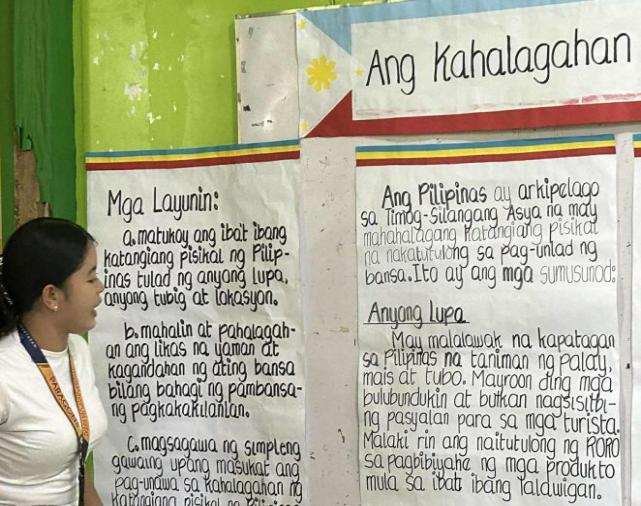 Ang Kahalagahan
Mga Layunin:
a. matukoy ang ibat ibang
katangiang pisikal ng Pilip-
inas tulad ng anyong lupa,
anyong tubig at lokasyon.
b. mahalin at pahalagah-
an ang likas na yaman at
kagandahan ng ating bansa
bilang bahagi ng pambansa-
ng pagkakakilanlan.
C. magsagawa ng simpleng
gawaing upang masukat ang
pag-unawa sa kahalagahan ng
katangiang pisikal ng Pilipinas
Ang Pilipinas ay arkipelago
sa Timog-Silangang Asya na may
mahahalagang katangiang pisikal
na nakatutulong sa pag-unlad ng
bansa. Ito ay ang mga sumusunod:
Anyong Lupa
May malalawak na kapatagan
sa Pilipinas na taniman ng palay,
mais at tubo. Mayroon ding mga
bulubundukin at bulkan nagsisilbi-
ng pasyalan para sa mga turista.
Malaki rin ang naitutulong ng RORO
sa pagbibiyahe ng mga produkto
mula sa ibat ibang lalawigan.